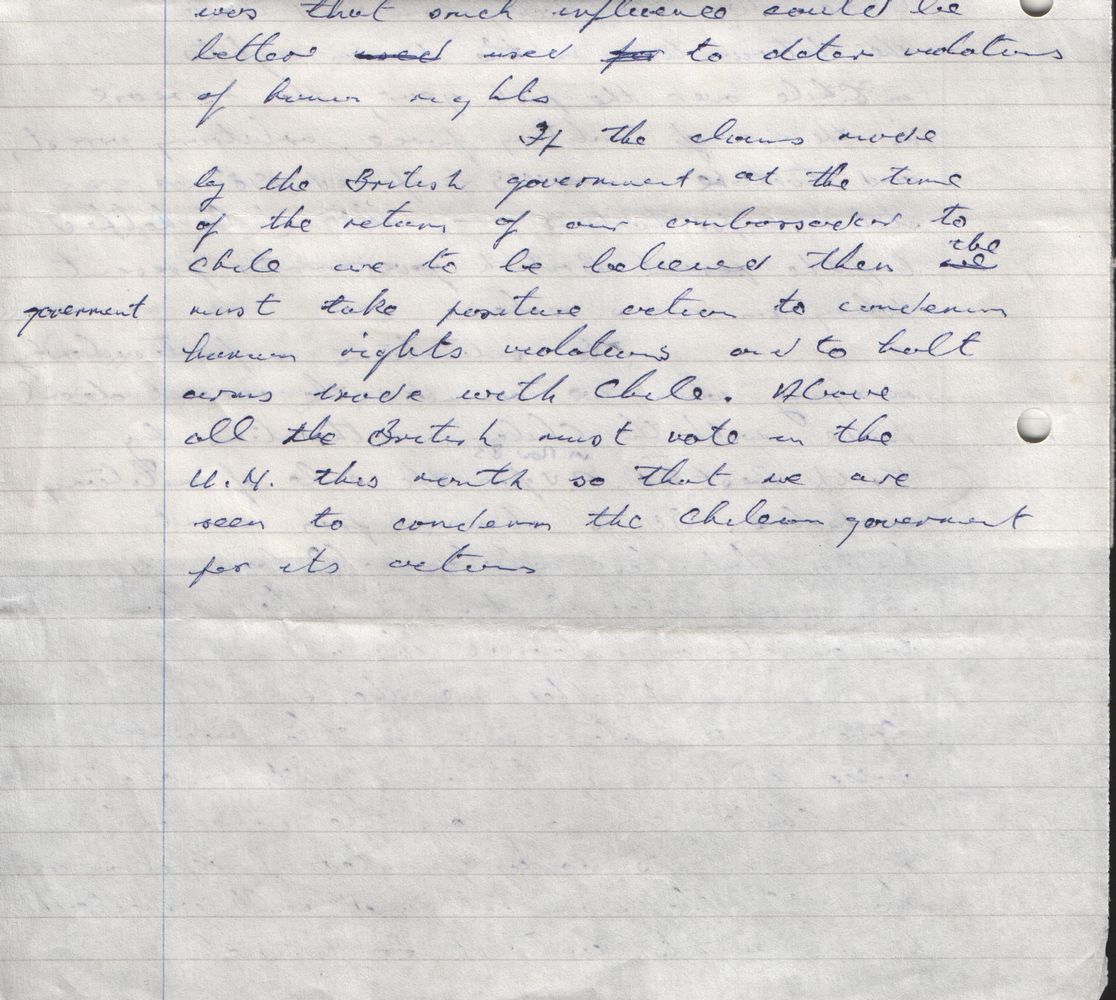 was that such influence could be
better used used for to deter violations
of human rights
If the claims made
by the British government at the time
of the return of our ambassador to
the
Chile are to be believed then we
government must take positive action to condemn
human rights violations and to halt
arms trade with Chile. Above
all the British must vote in the
U.N. this month so that we are
seen to condemn the Chilean goverment
for its actions